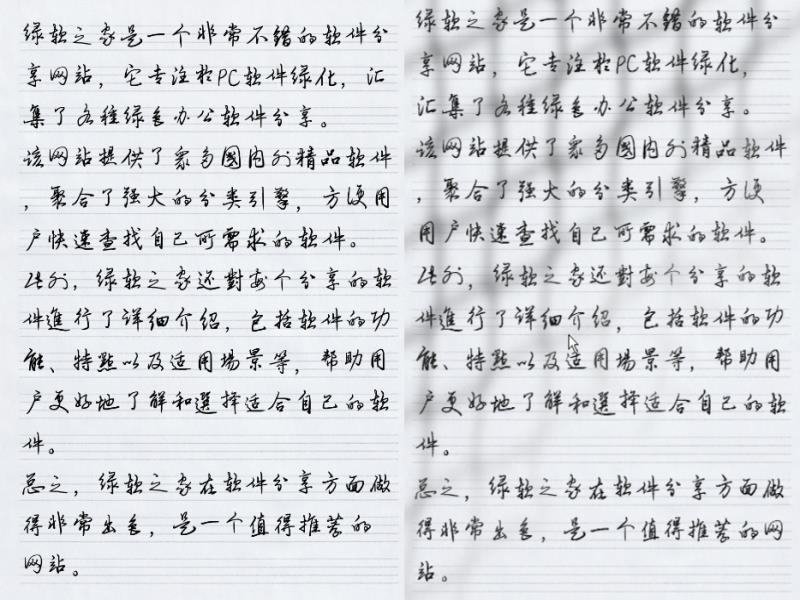 绿软之家是一个非常不错的软件分
享网站，它专注于PC软件绿化，汇
集了各种绿色办公软件分享。
该网站提供了众多國内外精品软件
，聚合了强大的分类引擎，方便用
户快速查找自己所需求的软件。
此外，绿软之家还對每个分享的软
件進行了详细介绍，包括软件的功
能、特點以及适用场景等，帮助用
户更好地了解和選择适合自己的软
件。
总之，绿软之家在软件分享方面做
得非常出色，是一个值得推荐的
网站。
绿软之家是一个非常不错的软件分
享网站，它专注于PC软件绿化，
汇集了各种绿色办公软件分享。
该网站提供了众多國内外精品软件
，聚合了强大的分类引擎，方便
用户快速查找自己所需求的软件。
此外，绿软之家还對每个分享的软
件進行了详细介绍，包括软件的功
能、特點以及适用场景等，帮助用
户更好地了解和選择适合自己的软
件。
总之，绿软之家在软件分享方面做
得非常出色，是一个值得推荐的网
站。